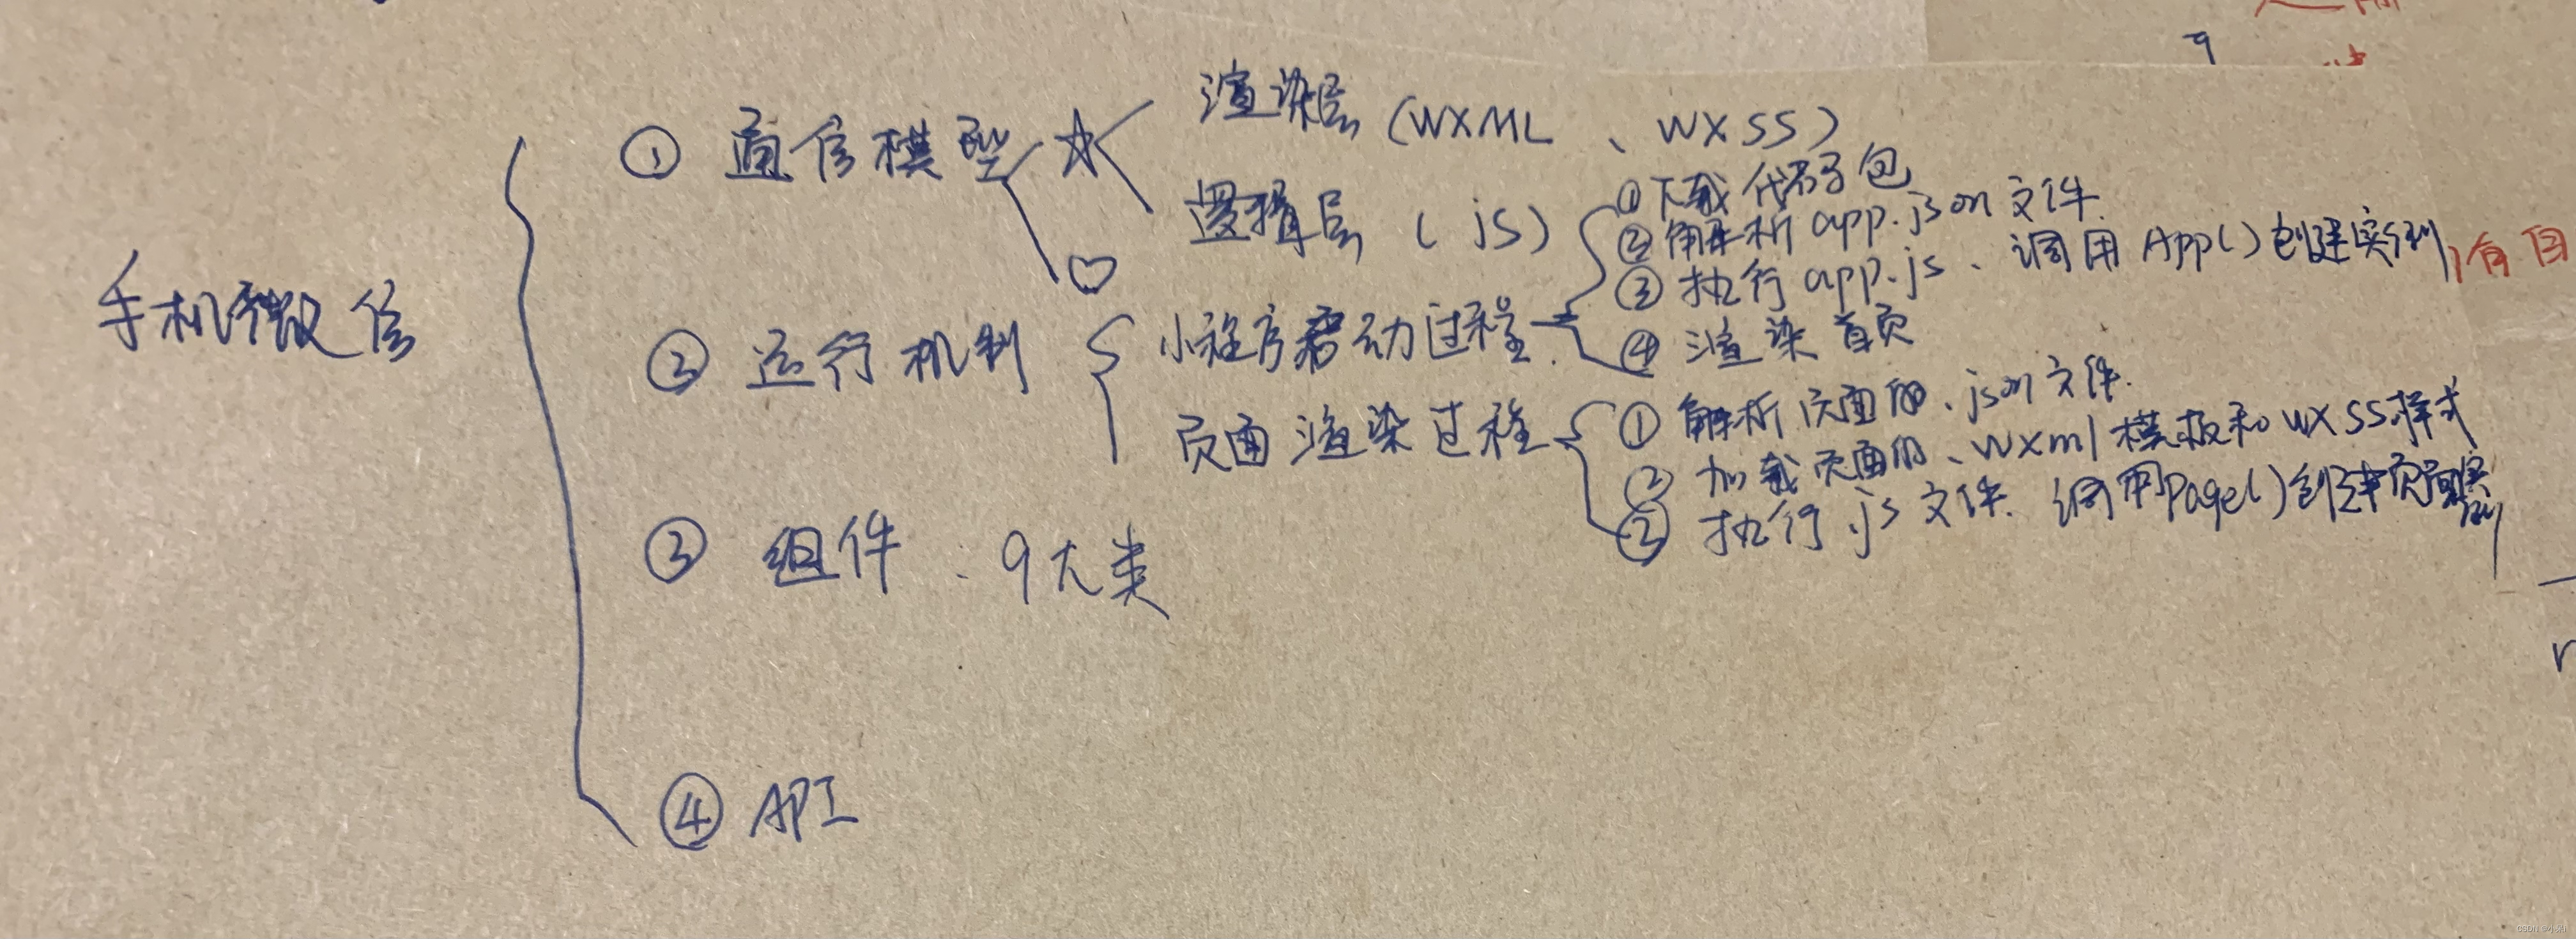 手机微信
① 通信模型 ☆
渲染层 (WXML 、WXSS)
逻辑层 ( js )
♡
② 运行机制
小程序启动过程
① 下载代码包
② 解析 app.json 文件.
③ 执行 app.js 、调用 App() 创建实例
有自
④ 渲染首页
页面渲染过程
① 解析页面的 .json 文件.
② 加载页面的 、wxml 模板和 wxss样式
③ 执行 .js 文件. 调用Page()创建页面实例
③ 组件 . 9大类
④ API
9
CSDN